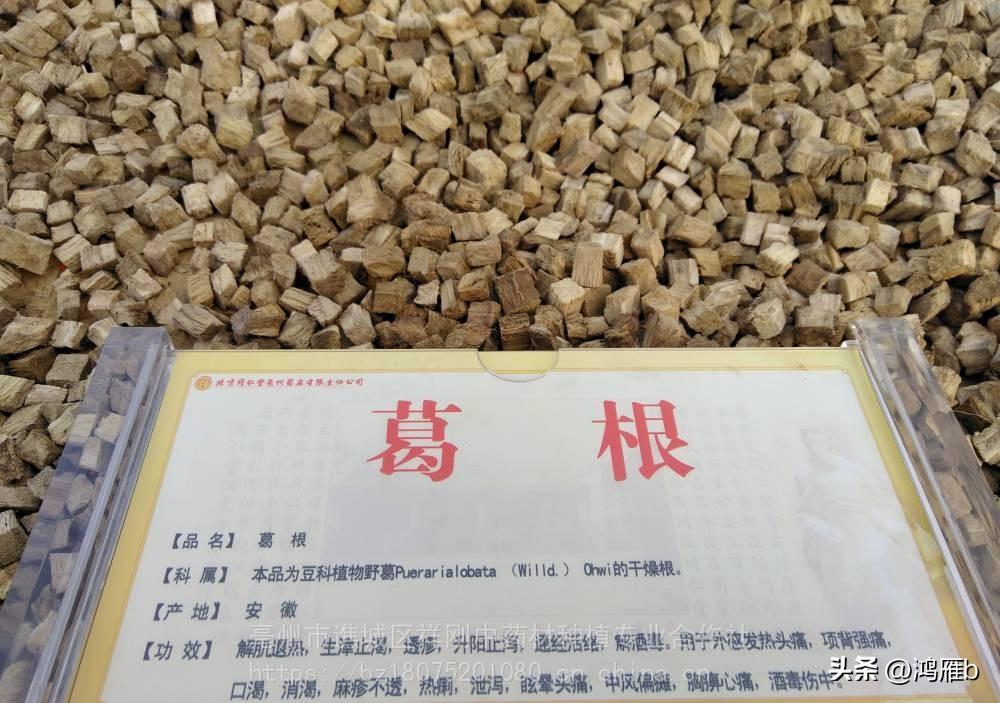 北京同仁堂亳州药店有限责任公司
葛 根
【品 名】 葛 根
【科 属】 本品为豆科植物野葛Puerarialobata (Willd.) Ohwi的干燥根。
【产 地】 安 徽
【功 效】 解肌退热,生津止渴,透疹,升阳止泻,通经活络,解酒毒。用于外感发热头痛,项背强痛,
口渴,消渴,麻疹不透,热痢,泄泻,眩晕头痛,中风偏瘫,胸痹心痛,酒毒伤中。
亳州市谯城区祥刚中药材种植专业合作社
https://bz18075201080.cn.china.cn
头条 @鸿雁b